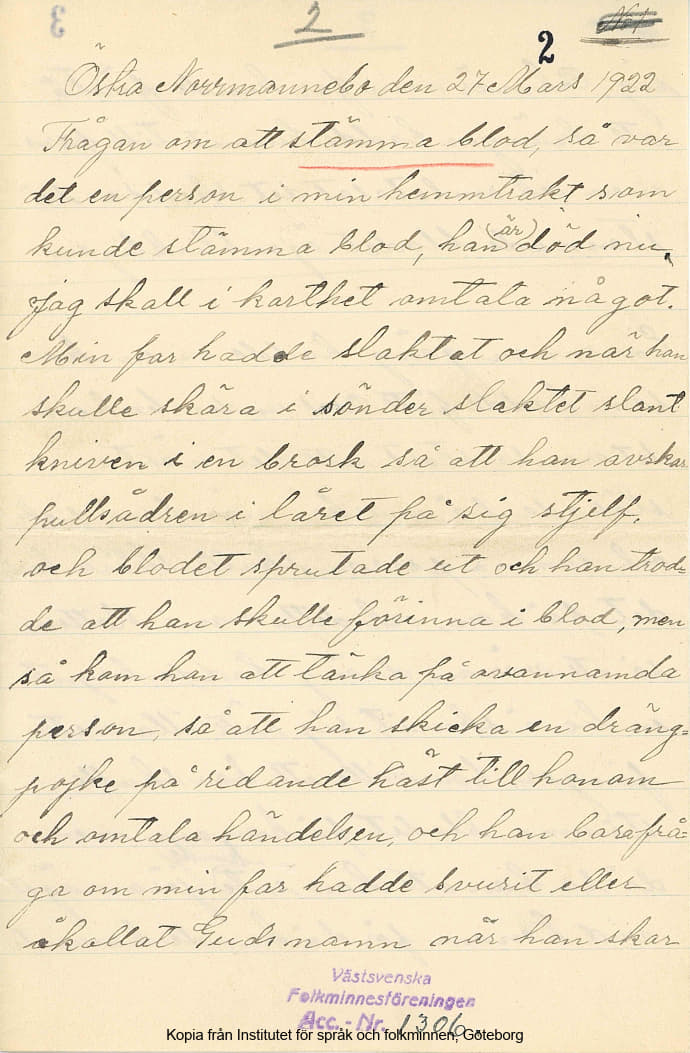 2
2
Östra Norrmannebo den 27 Mars 1922
Frågan om att stämma blod, så var
det en person i min hemmtrakt som
kunde stämma blod, han (är) död nu,
jag skall i korthet omtala något.
Min far hadde slaktat och när han
skulle skära i sönder slaktet slant
kniven i en brosk så att han avskar
pullsådren i låret på sig stjelf,
och blodet sprutade ut och han trod=
de att han skulle förinna i blod, men
så kom han att tänka på ovannamda
person, så att han skicka en dräng=
pojke på ridande häst till honom
och omtala händelsen, och han bara frå=
ga om min far hadde svurit eller
åkallat Guds namn när han skar
Västsvenska
Folkminnesföreningen
Acc.-Nr. 1306.
Kopia från Institutet för språk och folkminnen, Göteborg